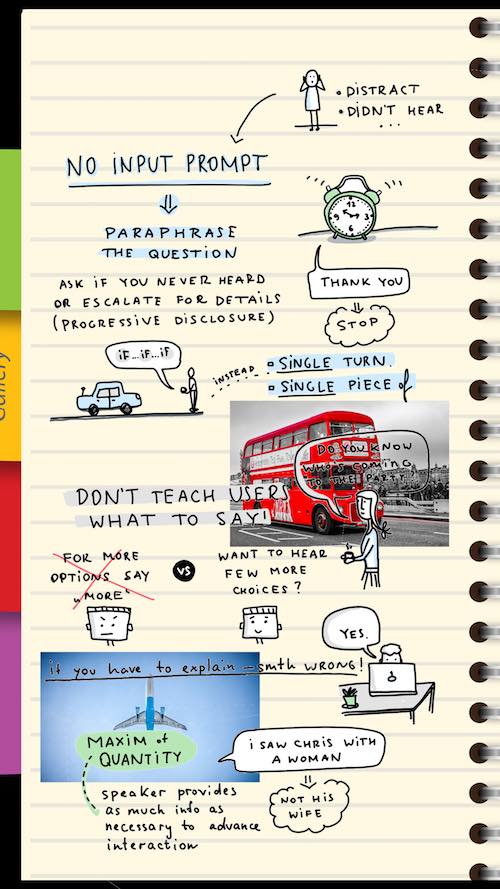 • DISTRACT
• DIDN'T HEAR
...
NO INPUT PROMPT
PARAPHRASE
THE QUESTION
12
3
6
9
ASK IF YOU NEVER HEARD
OR ESCALATE FOR DETAILS
(PROGRESSIVE DISCLOSURE)
THANK YOU
STOP
iF...iF...iF
INSTEAD
SINGLE TURN.
SINGLE PIECE of
DO YOU KNOW
WHO'S COMING
TO THE PARTY?
DON'T TEACH USERS
WHAT TO SAY!
FOR MORE
OPTIONS SAY
"MORE"
VS
WANT TO HEAR
FEW MORE
CHOICES?
YES.
if you have to explain – smth WRONG!
MAXIM of
QUANTITY
I SAW CHRIS WITH
A WOMAN
NOT HIS
WIFE
speaker provides
as much info as
necessary to advance
interaction
Gallery